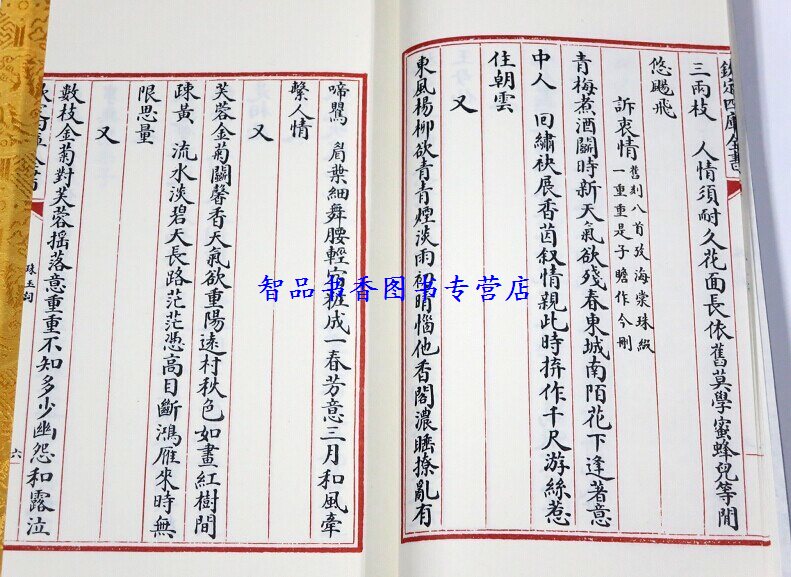 欽定四庫全書
三兩枝　人情須耐久花面長依舊莫學蜜蜂兒等閒
悠颺飛
訴衷情
舊刻八首攷海棠珠綴
一重重是子瞻作今刪
青梅煮酒鬬時新天氣欲殘春東城南陌花下逢著意
中人　回繡袂展香茵叙情親此時拚作千尺游絲惹
住朝雲
又
東風楊柳欲青青煙淡雨初晴惱他香閣濃睡撩亂有
啼鸎　眉葉細舞腰輕宿粧成一春芳意三月和風牽
繫人情
又
芙蓉金菊鬬馨香天氣欲重陽遠村秋色如畫紅樹間
踈黃　流水淡碧天長路茫茫憑高目斷鴻雁來時無
限思量
又
數枝金菊對芙蓉揺落意重重不知多少幽怨和露泣
珠玉詞
六
智品书香图书专营店